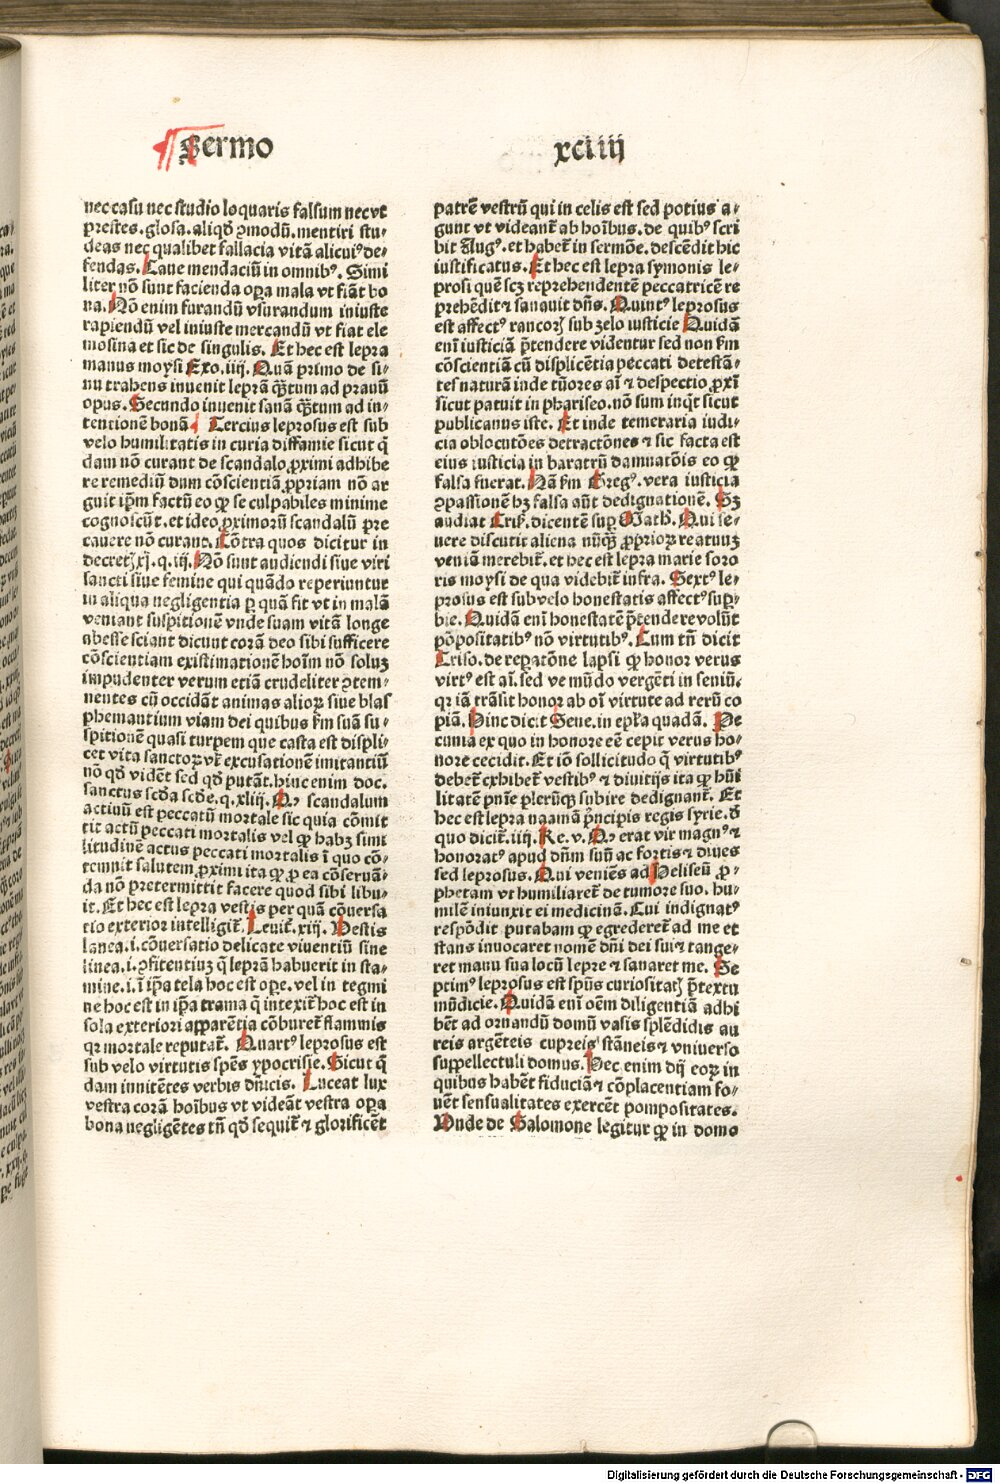 Sermo xciiij
nec casu nec studio loquaris falsum nec vt
prestes. glosa. aliqd̄ ꝯmodū. mentiri stu⸗
deas nec qualibet fallacia vitā alicui⁹ de⸗
fendas. Caue mendaciū in omnib⁹. Simi
liter nō sunt facienda oꝑa mala vt fiāt bo
na. Nō enim furandū vsurandum iniuste
rapiendū vel iniuste mercandū vt fiat ele
mosina et sic de singulis. Et hec est lepra
manus moysi Exo. iiij. Quā primo de si⸗
nu trahens inuenit leprā q̄ꝫtum ad prauū
opus. Secundo inuenit sanā q̄ꝫtum ad in⸗
tentionē bonā Tercius leprosus est sub
velo humilitatis in curia diffamie sicut q̄
dam nō curant de scandalo ꝓximi adhibe
re remediū dum cōscientiā ꝓpriam nō ar
guit ip̄m factū eo ꝙ se culpabiles minime
cognoscūt. et ideo ꝓximorū scandalū pre
cauere nō curanṫ. Cōtra quos dicitur in
decretꝭ xj. q. iij. Nō sunt audiendi siue viri
sancti siue femine qui quādo reperiuntur
in aliqua negligentia ꝑ quā fit vt in malā
veniant suspitionē vnde suam vitā longe
abesse sciant dicunt corā deo sibi sufficere
cōscientiam existimationē hoīm nō soluꝫ
impudenter verum etiā crudeliter ꝯtem⸗
nentes cū occidāt animas alioꝝ siue blas
phemantium viam dei quibus ẜm suā su⸗
spitionē quasi turpem que casta est displi⸗
cet vita sanctoꝝ vr̄ excusationē imitantiū
nō qd̄ vidēt sed qd̄ putāt. hinc enim doc.
sanctus scd̄a scd̄e. q. xliij. Qꝛ scandalum
actiuū est peccatū mortale sic quia cōmit
tit actū peccati mortalis vel ꝙ habꝫ simi
litudinē actus peccati mortalis ī quo cō⸗
temnit salutem ꝓximi ita ꝙ ꝓ ea cōseruā⸗
da nō pretermittit facere quod sibi libu⸗
it. Et hec est lepra vestis per quā cōuersa
tio exterior intelligit̄. Leuit̄. xiij. Vestis
lanea .i. cōuersatio delicate viuentiū sine
linea .i. ꝯfitentiuꝫ q̄ leprā habuerit in sta⸗
mine .i. ī ip̄a tela hoc est oꝑe. vel in tegmi
ne hoc est in ip̄a trama q̄ intexit̄ hoc est in
sola exteriori apparētia cōburet̄ flammis
qꝛ mortale reputat̄. Quart⁹ leprosus est
sub velo virtutis spēs ypocrisie. Sicut q̄
dam innitētes verbis dn̄icis. Luceat lux
vestra corā hoībus vt videāt vestra oꝑa
bona negligētes tn̄ qd̄ sequit̄ ⁊ glorificēt
patrē vestrū qui in celis est sed potius a⸗
gunt vt videant̄ ab hoībus. de quib⁹ scri
bit Aug⁹. et habet̄ in sermōe. descēdit hic
iustificatus. Et hec est lepra symonis le⸗
prosi quē scꝫ reprehendentē peccatricē re
prehēdit ⁊ sanauit dn̄s. Quint⁹ leprosus
est affect⁹ rancorꝭ sub zelo iusticie Quidā
enī iusticiā p̄tendere videntur sed non ẜm
cōscientiā cū displicētia peccati detestā⸗
tes naturā inde tūores aī ⁊ despectio ꝓxī
sicut patuit in phariseo. nō sum inq̄t sicut
publicanus iste. Et inde temeraria iudi⸗
cia oblocutōes detractōnes ⁊ sic facta est
eius iusticia in baratrū damnatōis eo ꝙ
falsa fuerat. Nā ẜm Greg⁹. vera iusticia
ꝯpassionē hꝫ falsa aūt dedignationē. Sꝫ
audiat Criẜ. dicentē suꝑ Math. Qui se⸗
uere discutit aliena nūq̄ꝫ ꝓprioꝝ reatuuꝫ
veniā merebit̄. et hec est lepra marie soro
ris moysi de qua videbit̄ infra. Sext⁹ le⸗
prosus est sub velo honestatis affect⁹ suꝑ⸗
bie. Quidā enī honestatē p̄tendere volūt
pōpositatib⁹ nō virtutib⁹. Cum tn̄ dicit
Criso. de reꝑatōne lapsi ꝙ honor verus
virt⁹ est aī. sed ve mūdo vergēti in seniū.
qꝛ iā trāsit honor ab oī virtute ad rerū co
piā. Hinc dicit Sene. in epl̄a quadā. Pe
cunia ex quo in honore eē cepit verus ho⸗
nore cecidit. Et iō sollicitudo q̄ virtutib⁹
debet̄ exhibet̄ vestib⁹ ⁊ diuitijs ita ꝙ hūi
litatē pn̄ie pleruqꝫ subire dedignant̄. Et
hec est lepra naamā p̄ncipis regis syrie. d̄
quo dicit̄. iiij. Re. v. Qꝛ erat vir magn⁹ ⁊
honorat⁹ apud dn̄m suū ac fortis ⁊ diues
sed leprosus. Qui veniēs ad Heliseū ꝓ⸗
phetam vt humiliaret̄ de tumore suo. hu⸗
milē iniunxit ei medicinā. Cui indignat⁹
respōdit putabam ꝙ egrederet̄ ad me et
stans inuocaret nomē dn̄i dei sui ⁊ tange⸗
ret manu sua locū lepre ⁊ sanaret me. Se
ptim⁹ leprosus est spūs curiositatꝭ p̄textu
mūdicie. Quidā enī oēm diligentiā adhi
bēt ad ornandū domū vasis splēdidis au
reis argēteis cupreis stāneis ⁊ vniuerso
suppellectuli domus. Hec enim dij eoꝝ in
quibus habēt fiduciā ⁊ cōplacentiam fo⸗
uēt sensualitates exercēt pompositates.
Vnde de Salomone legitur ꝙ in domo
Digitalisierung gefördert durch die Deutsche Forschungsgemeinschaft - DFG